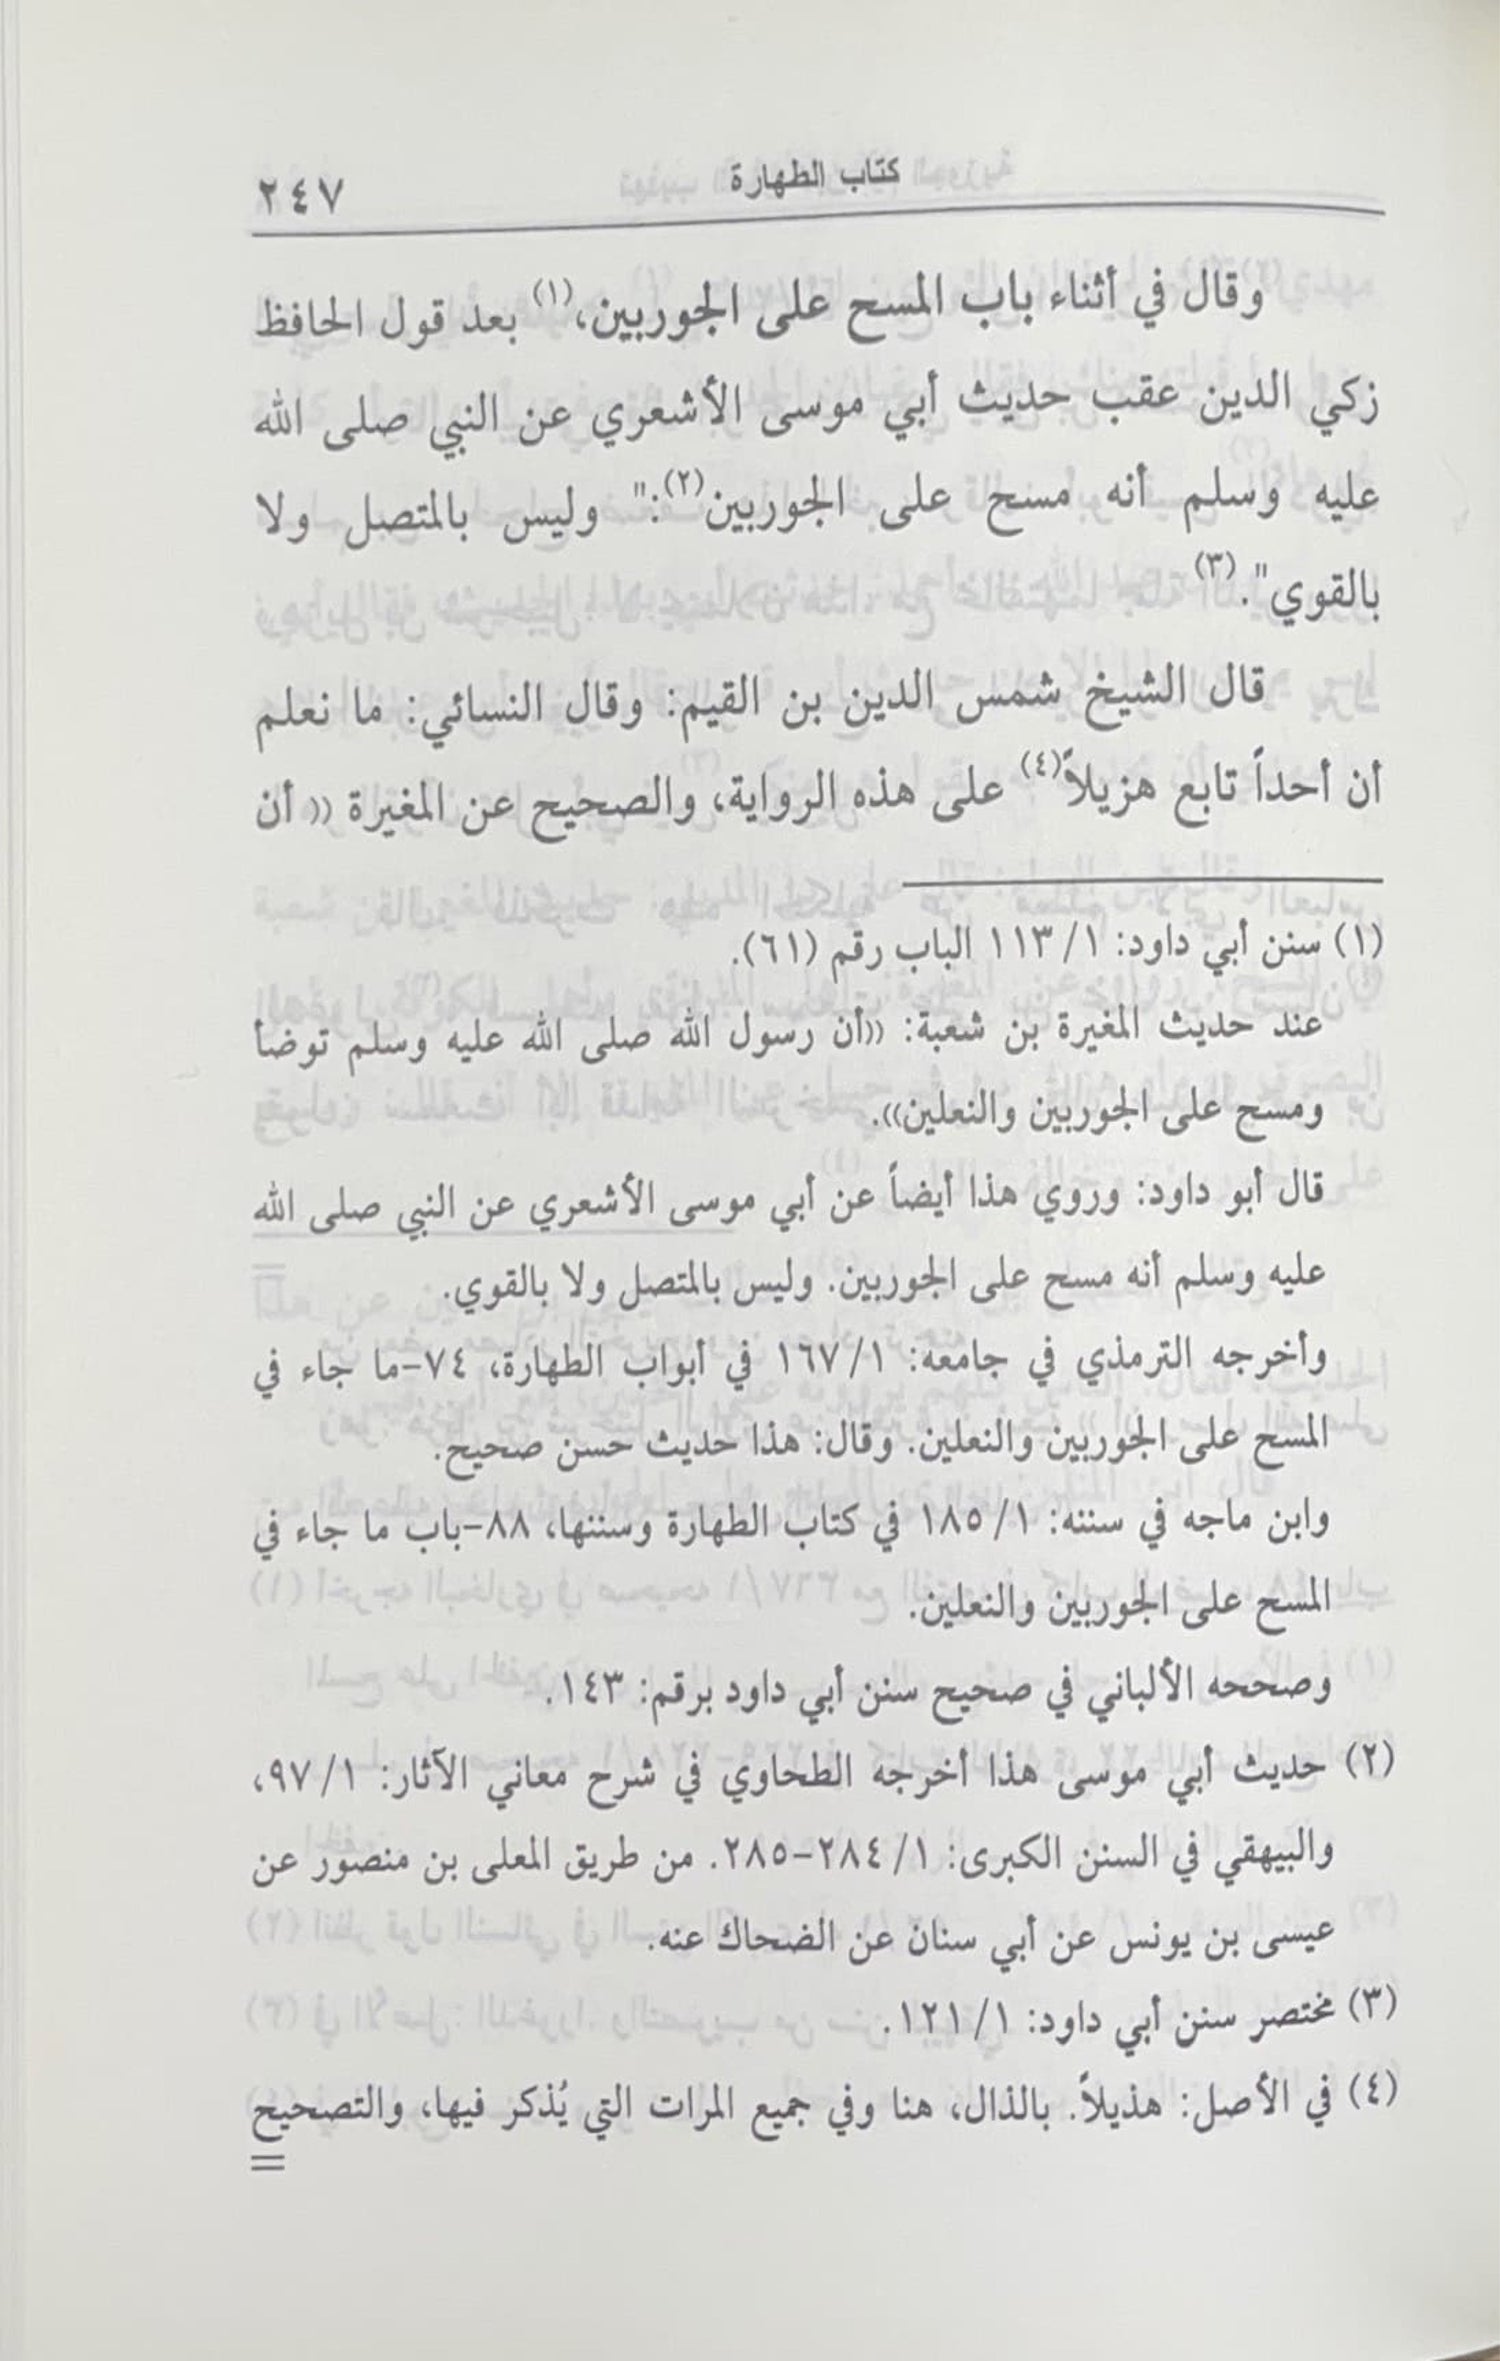 كتاب الطهارة ٢٤٧
وقال في أثناء باب المسح على الجوربين،(١) بعد قول الحافظ
زكي الدين عقب حديث أبي موسى الأشعري عن النبي صلى الله
عليه وسلم أنه مسح على الجوربين(٢):" وليس بالمتصل ولا
بالقوي".(٣)
قال الشيخ شمس الدين بن القيم: وقال النسائي: ما نعلم
أن أحداً تابع هزيلاً(٤) على هذه الرواية، والصحيح عن المغيرة ((أن
(١) سنن أبي داود: ١/ ١١٣ الباب رقم (٦١).
عند حديث المغيرة بن شعبة: ((أن رسول الله صلى الله عليه وسلم توضأ
ومسح على الجوربين والنعلين)).
قال أبو داود: وروي هذا أيضاً عن أبي موسى الأشعري عن النبي صلى الله
عليه وسلم أنه مسح على الجوربين. وليس بالمتصل ولا بالقوي.
وأخرجه الترمذي في جامعه: ١/ ١٦٧ في أبواب الطهارة، ٧٤-ما جاء في
المسح على الجوربين والنعلين. وقال: هذا حديث حسن صحيح.
وابن ماجه في سننه: ١/ ١٨٥ في كتاب الطهارة وسننها، ٨٨-باب ما جاء في
المسح على الجوربين والنعلين.
وصححه الألباني في صحيح سنن أبي داود برقم: ١٤٣.
(٢) حديث أبي موسى هذا أخرجه الطحاوي في شرح معاني الآثار: ١/ ٩٧،
والبيهقي في السنن الكبرى: ١/ ٢٨٤-٢٨٥. من طريق المعلى بن منصور عن
عيسى بن يونس عن أبي سنان عن الضحاك عنه.
(٣) مختصر سنن أبي داود: ١/ ١٢١.
(٤) في الأصل: هذيلاً. بالذال، هنا وفي جميع المرات التي يُذكر فيها، والتصحيح
=